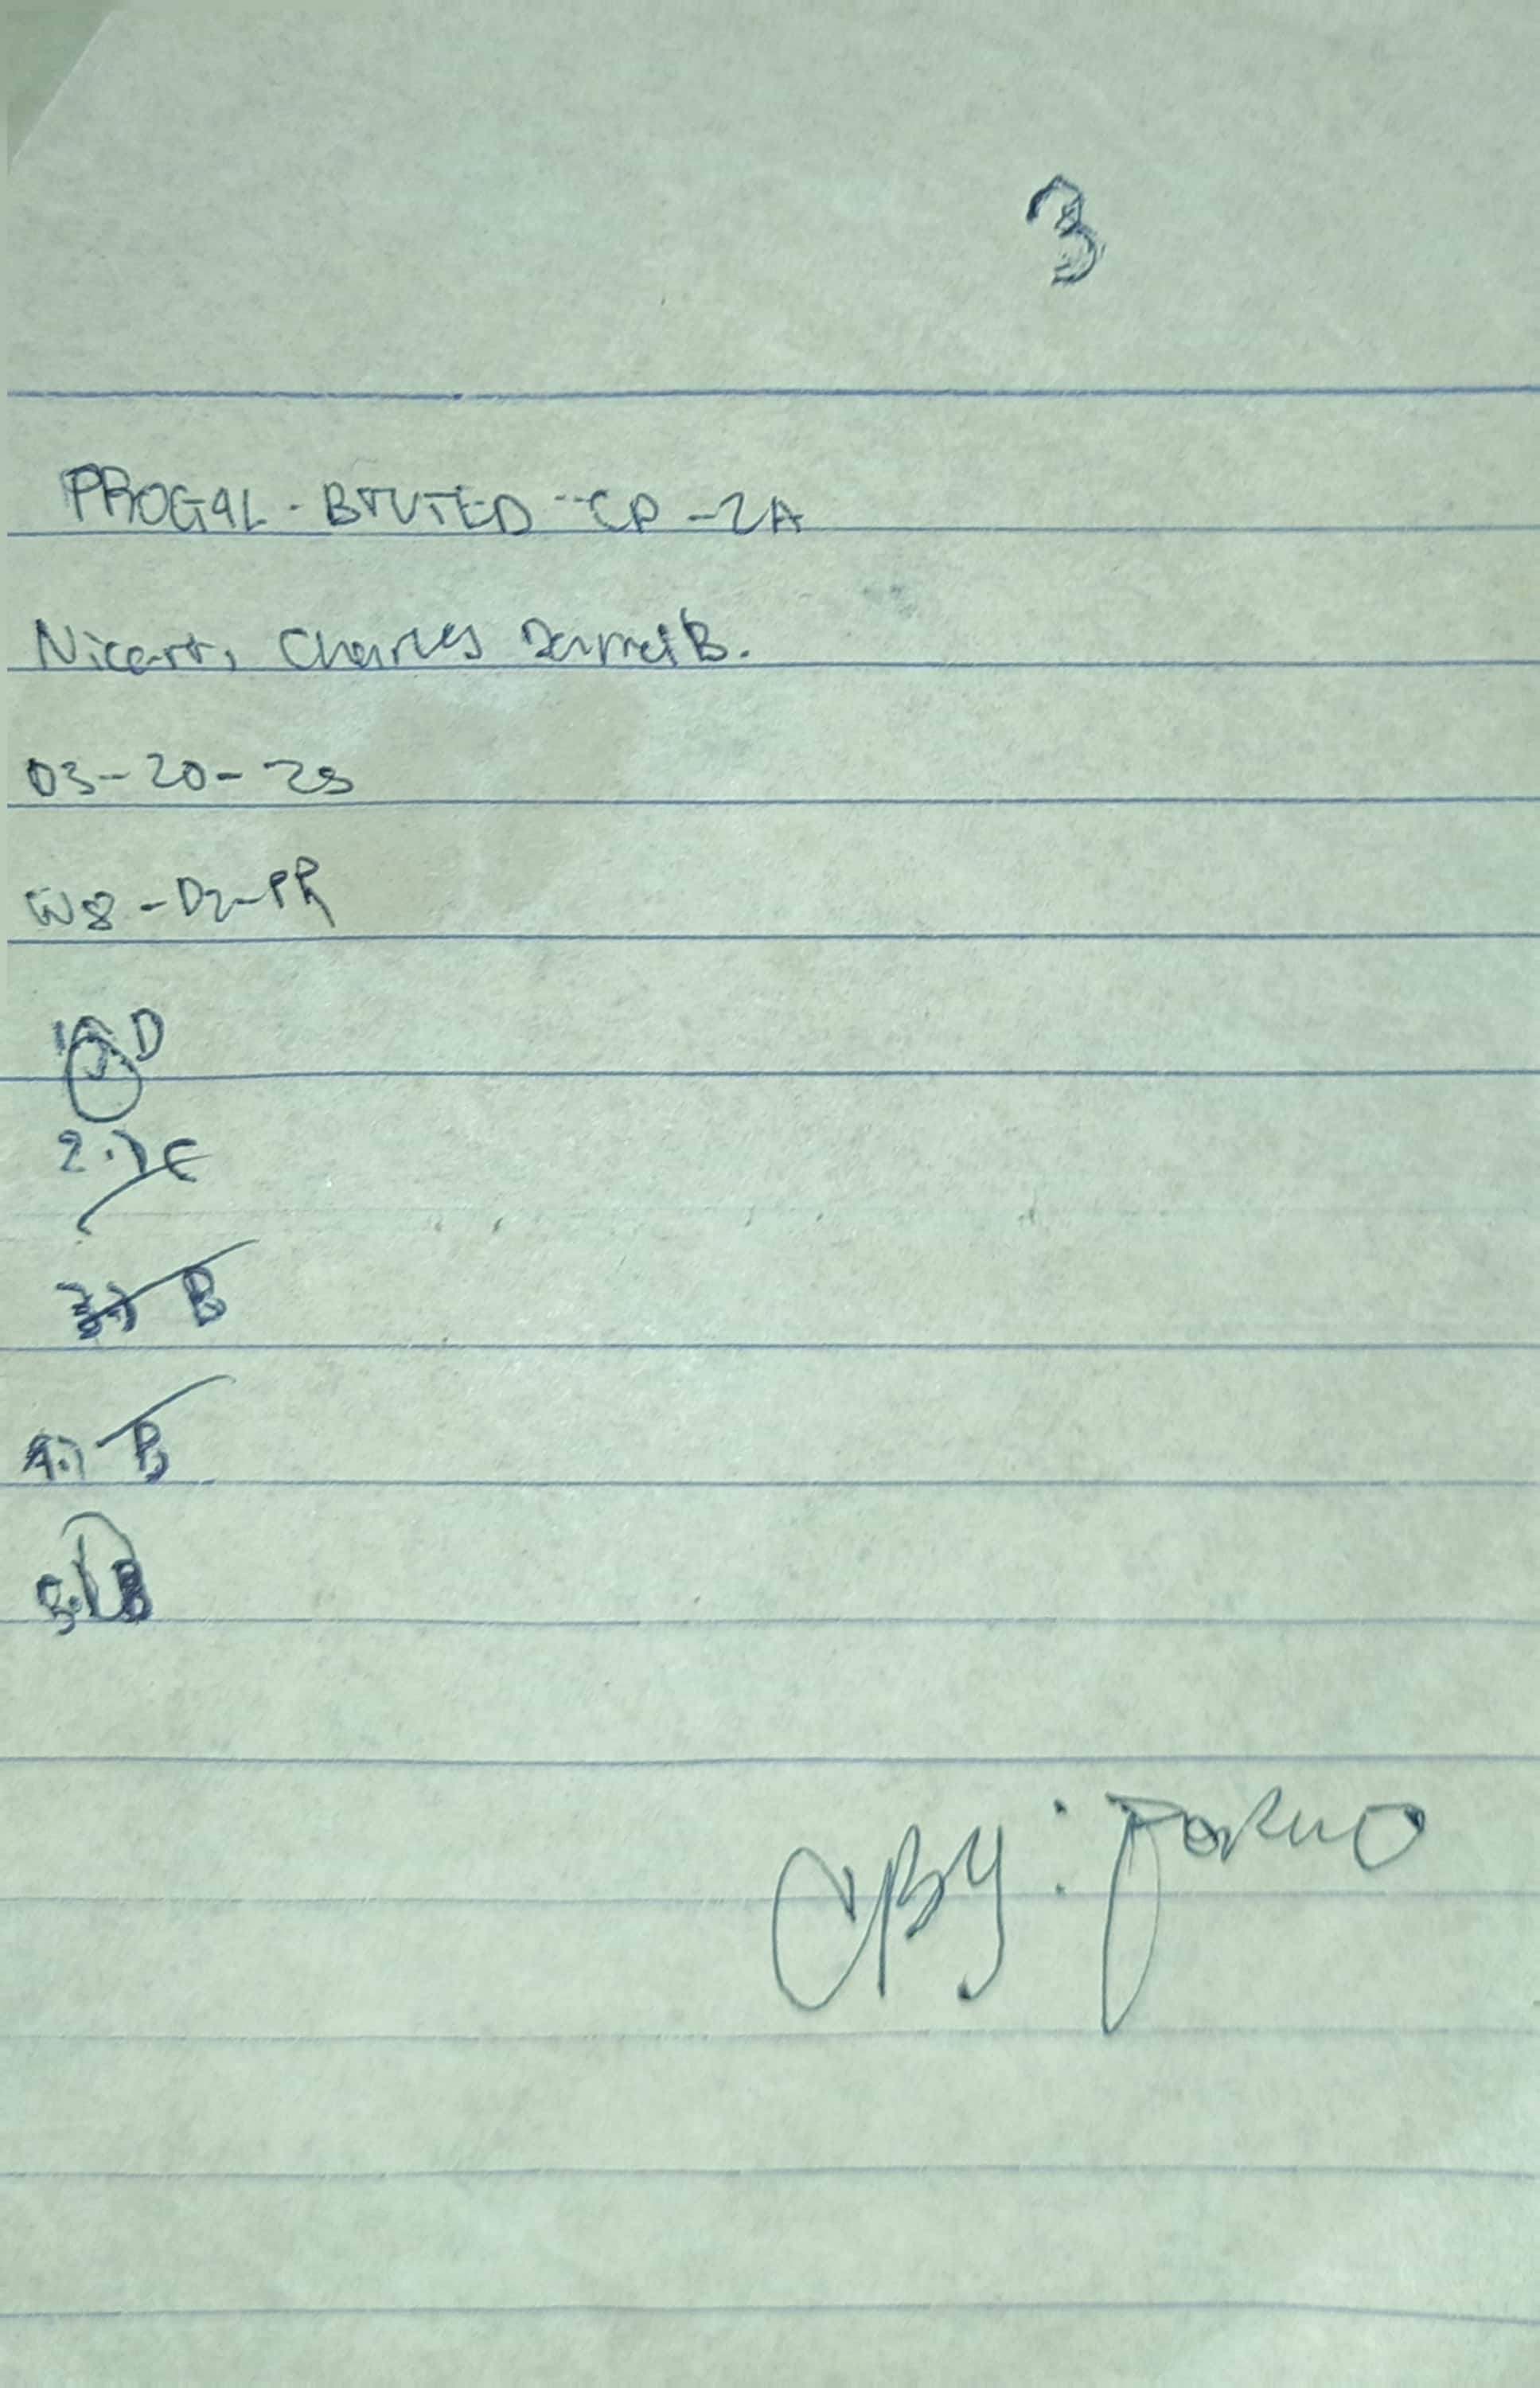 3
PROG4L - BTVTED - CP - 2A
Nicart, Charles B.
03-20-25
W8-D2-PR
1.) D
2.) C
3.) B
4.) B
5.) B
CBY: